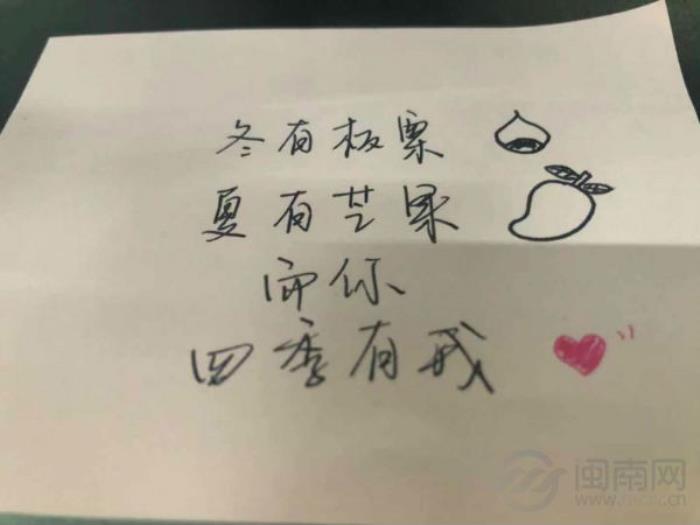 冬有板栗
夏有芒果
而你
四季有我
闽南网